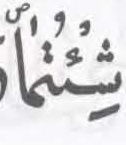 شِئْتُمَا